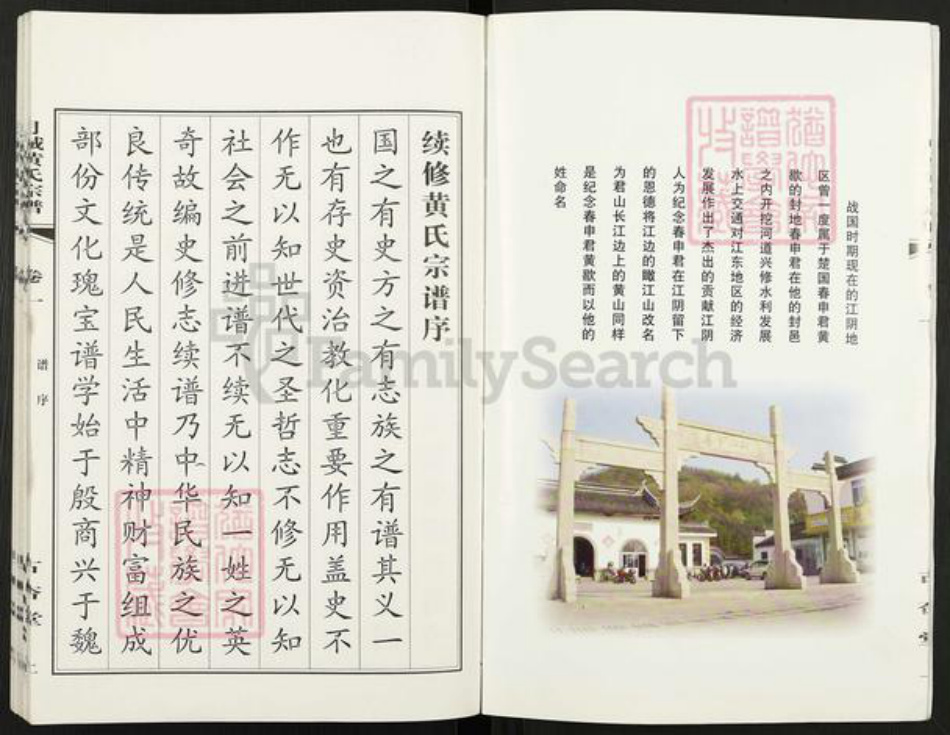 战国时期现在的江阴地
区曾一度属于楚国春申君黄
歇的封地春申君在他的封邑
之内开挖河道兴修水利发展
水上交通对江东地区的经济
发展作出了杰出的贡献江阴
人为纪念春申君在江阴留下
的恩德将江边的瞰江山改名
为君山长江边上的黄山同样
是纪念春申君黄歇而以他的
姓命名
续修黄氏宗谱序
国之有史方之有志族之有谱其义一
也有存史资治教化重要作用盖史不
作无以知世代之圣哲志不修无以知
社会之前进谱不续无以知一姓之英
奇故编史修志续谱乃中华民族之优
良传统是人民生活中精神财富组成
部份文化瑰宝谱学始于殷商兴于魏
黄氏宗谱
卷一
谱序
FamilySearch